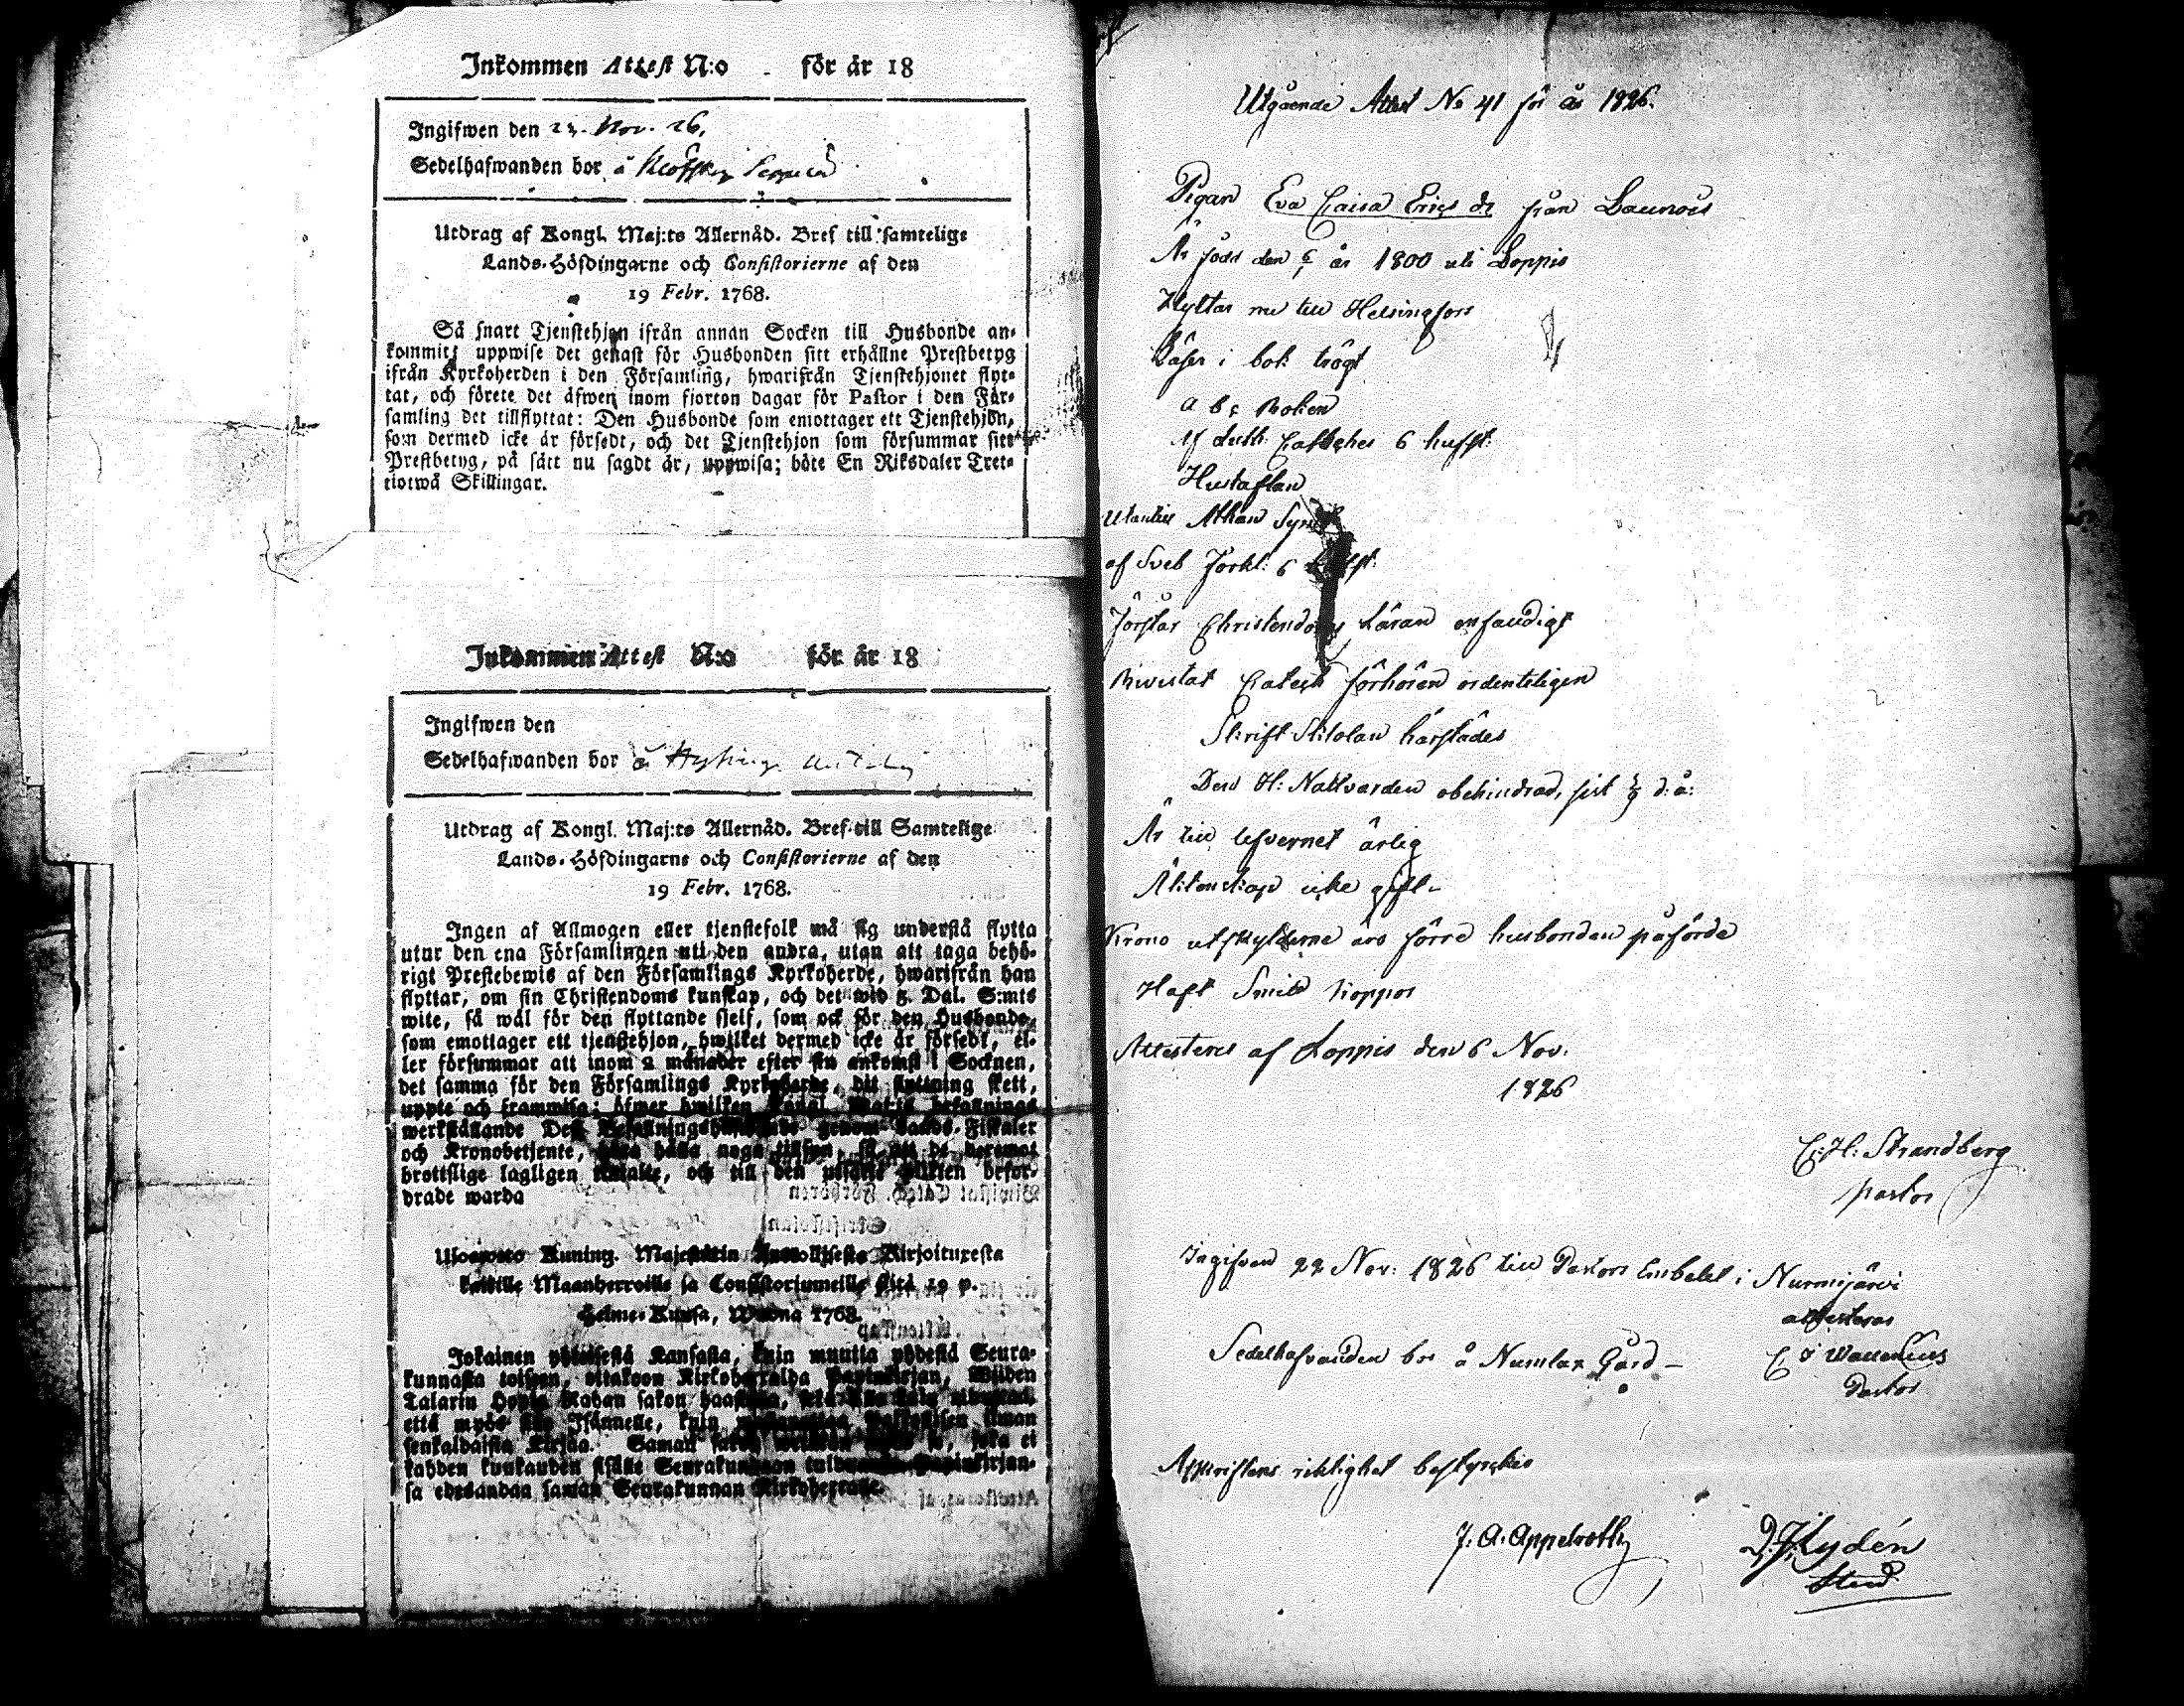 Inkommen Attest N:o för år 18
Ingifwen den 23. Nov. 26.
Sedelhafwanden bor å
Utdrag af Kongl. Maj:ts Allernåd. Bref till samtelige
Lands-Höfdingarne och Consistorierne af den
19 Febr. 1768.
Så snart Tjenstehjon ifrån annan Socken till Husbonde an-
kommit, uppwise det genast för Husbonden sitt erhållne Prestbetyg
ifrån Kyrkoherden i den Församling, hwarifrån Tjenstehjonet flyt-
tat, och förete det äfwen inom fjorton dagar för Pastor i den För-
samling det tillflyttat: Den Husbonde som emottager ett Tjenstehjon,
som dermed icke är försedt, och det Tjenstehjon som försummar sitt
Prestbetyg, på sätt nu sagdt är, uppwisa; böte En Riksdaler Tret-
tiotwå Skillingar.
Inkommen Attest N:o för år 18
Ingifwen den
Sedelhafwanden bor å
Utdrag af Kongl. Maj:ts Allernåd. Bref till Samtelige
Lands-Höfdingarne och Consistorierne af den
19 Febr. 1768.
Ingen af Allmogen eller tjenstefolk må sig understå flytta
utur den ena Församlingen uti den andra, utan att taga behö-
rigt Prestebewis af den Församlings Kyrkoherde, hwarifrån han
flyttar, om sin Christendoms kunskap, och det wid 5. Dal. S:mts
wite, så wäl för den flyttande sjelf, som ock för den Husbonde,
som emottager ett tjenstehjon, hwilket dermed icke är försedt, el-
ler försummar att inom 2 månader efter sin ankomst i Socknen,
det samma för den Församlings Kyrkoherde, dit flyttning skett,
uppte och frammisa; öfwer hwilken Kongl. Maj:ts befallnings
werkställande Dess Befallningshafwande genom Lands-Fiskaler
och Kronobetjente, böra hålla noga tillsyn, så att de deremot
brottslige lagligen tiltalte, och till den utsatte plikten befor-
drade warda
Ulosweto Kuning. Majestätin Armollisesta Kirjoituxesta
kaikille Maanherroille ja Consistoriumeille siitä 19 p.
Helme-Kuusa, Wuonna 1768.
Jokainen yhteisestä Kansasta, kuin muutta yhdestä Seura-
kunnasta toiseen, ottakoon Kirkoherralda Papinkirjan, Wiiden
Talarin Hopia Rahan sakon haastolla,
että myös Isännelle, kuin ilman
senkaldaista Kirjaa. Saman sakon joka ei
kahden kuukauden sisälle Seurakundaan tulduansa Papinkirjan-
sa edesandaa saman Seurakunnan Kirkoherralle.
Utgående Attest No 41 för år 1826.
Pigan Eva Caisa Ericsdr från Launois
Är född den år 1800 uti Loppis
Flyttar nu till Helsingfors
Läser i bok trögt
a b c Boken
Af Luth. Cateches 6 hufst:
Hustaflan
Utantill Athan Symb
af Sveb Förkl: 6 Hufst:
Förstår Christendoms Läran enfaldigt
Bivistat Catech förhören ordenteligen
Skrift Skolan härstädes
Den H: Nattvarden obehindrad, sist d: å:
Är till lefvernet ärlig
Äktenskap icke gift-
Krono utskylderne äro förre husbonden påförde
Haft Smitt koppor
Attesteres af Loppis den 6 Nov:
1826
C: H: Strandberg
pastor
Ingifven 22 Nov: 1826 till Pastors Embetet i Nurmijärvi
attesterar
Sedelhafvanden bor å Numlax Gård - C J Wallenius
Pastor
Afskriftens riktighet bestyrckes
J. A. Appelroth D. J. Kydén
Stud